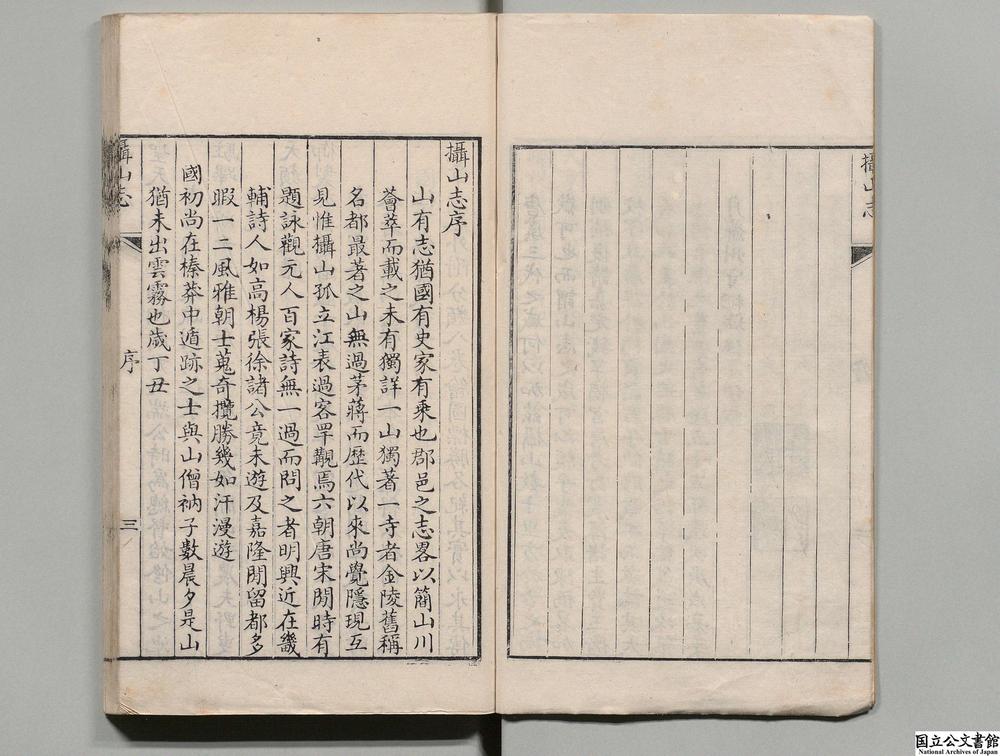 攝山志
攝山志序
山有志猶國有史家有乘也郡邑之志畧以簡山川
薈萃而載之未有獨詳一山獨著一寺者金陵舊稱
名都最著之山無過茅蔣而歷代以來尚覺隱現互
見惟攝山孤立江表過客罕觀焉六朝唐宋閒時有
題詠觀元人百家詩無一過而問之者明興近在畿
輔詩人如高楊張徐諸公竟未遊及嘉隆閒留都多
暇一二風雅朝士蒐奇攬勝幾如汗漫遊
國初尚在榛莽中遁跡之士與山僧衲子數晨夕是山
猶未出雲霧也歲丁丑
攝山志
序
三
国立公文書館
National Archives of Japan